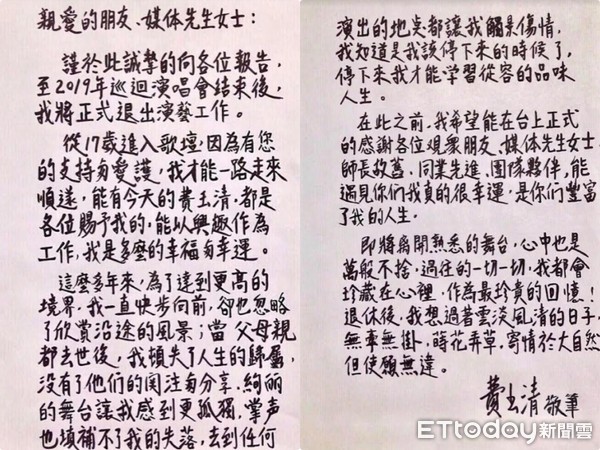 親愛的朋友、媒体先生女士：
謹於此誠摯的向各位報告，
至2019年巡迴演唱會結束後，
我將正式退出演藝工作。
從17歲進入歌壇，因為有您
的支持與愛護，我才能一路走來
順遂，能有今天的費玉清，都是
各位賜予我的，能以興趣作為
工作，我是多麼的幸福與幸運。
這麼多年來，為了達到更高的
境界，我一直快步向前，卻也忽略
了欣賞沿途的風景；當父母親
都去世後，我頓失了人生的歸屬，
沒有了他們的関注與分享，絢麗
的舞台讓我感到更孤獨，掌声
也填補不了我的失落，去到任何
演出的地点都讓我觸景傷情，
我知道是我該停下來的時候了，
停下來我才能學習從容的品味
人生。
在此之前，我希望能在台上正式
的感謝各位觀衆朋友、媒体先生女士、
師長故舊、同業先進、團隊夥伴，能
遇見你們我真的很幸運，是你們豐富
了我的人生。
即將離開熟悉的舞台，心中也是
萬般不捨，過往的一切一切，我都會
珍藏在心裡，作為最珍貴的回憶！
退休後，我想過著雲淡風清的日子，
無牽無掛，蒔花弄草，寄情於大自然
但使願無違。
費玉清 敬筆
ETtoday新聞雲